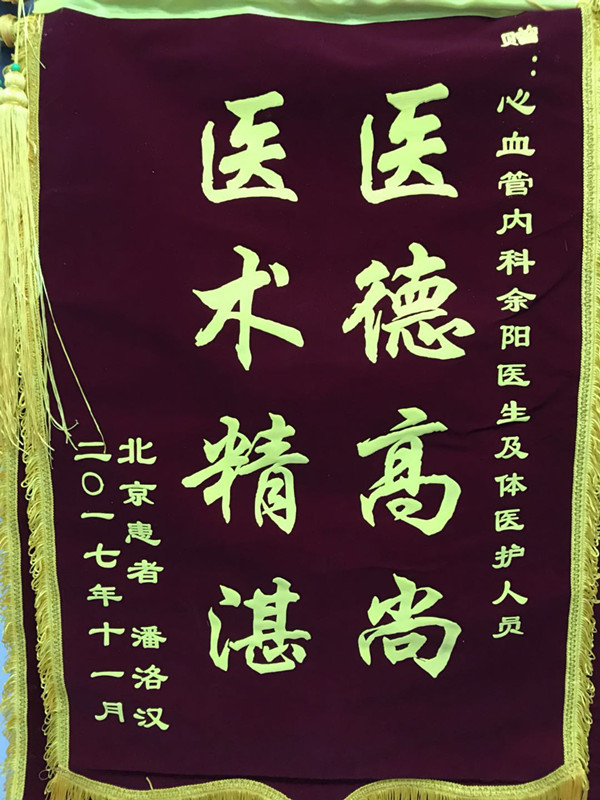 ：心血管内科余阳医生及体医护人员
医德高尚
医术精湛
北京患者 潘洛汉
二〇一七年十一月